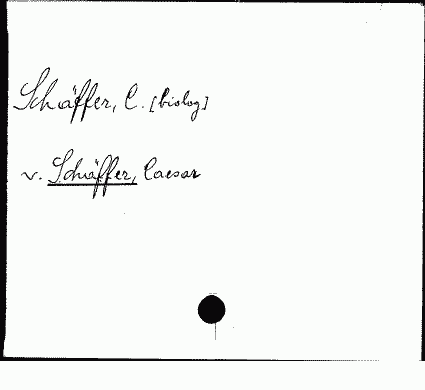 Schäffer, C. [biolog]
v. Schäffer, Caesar